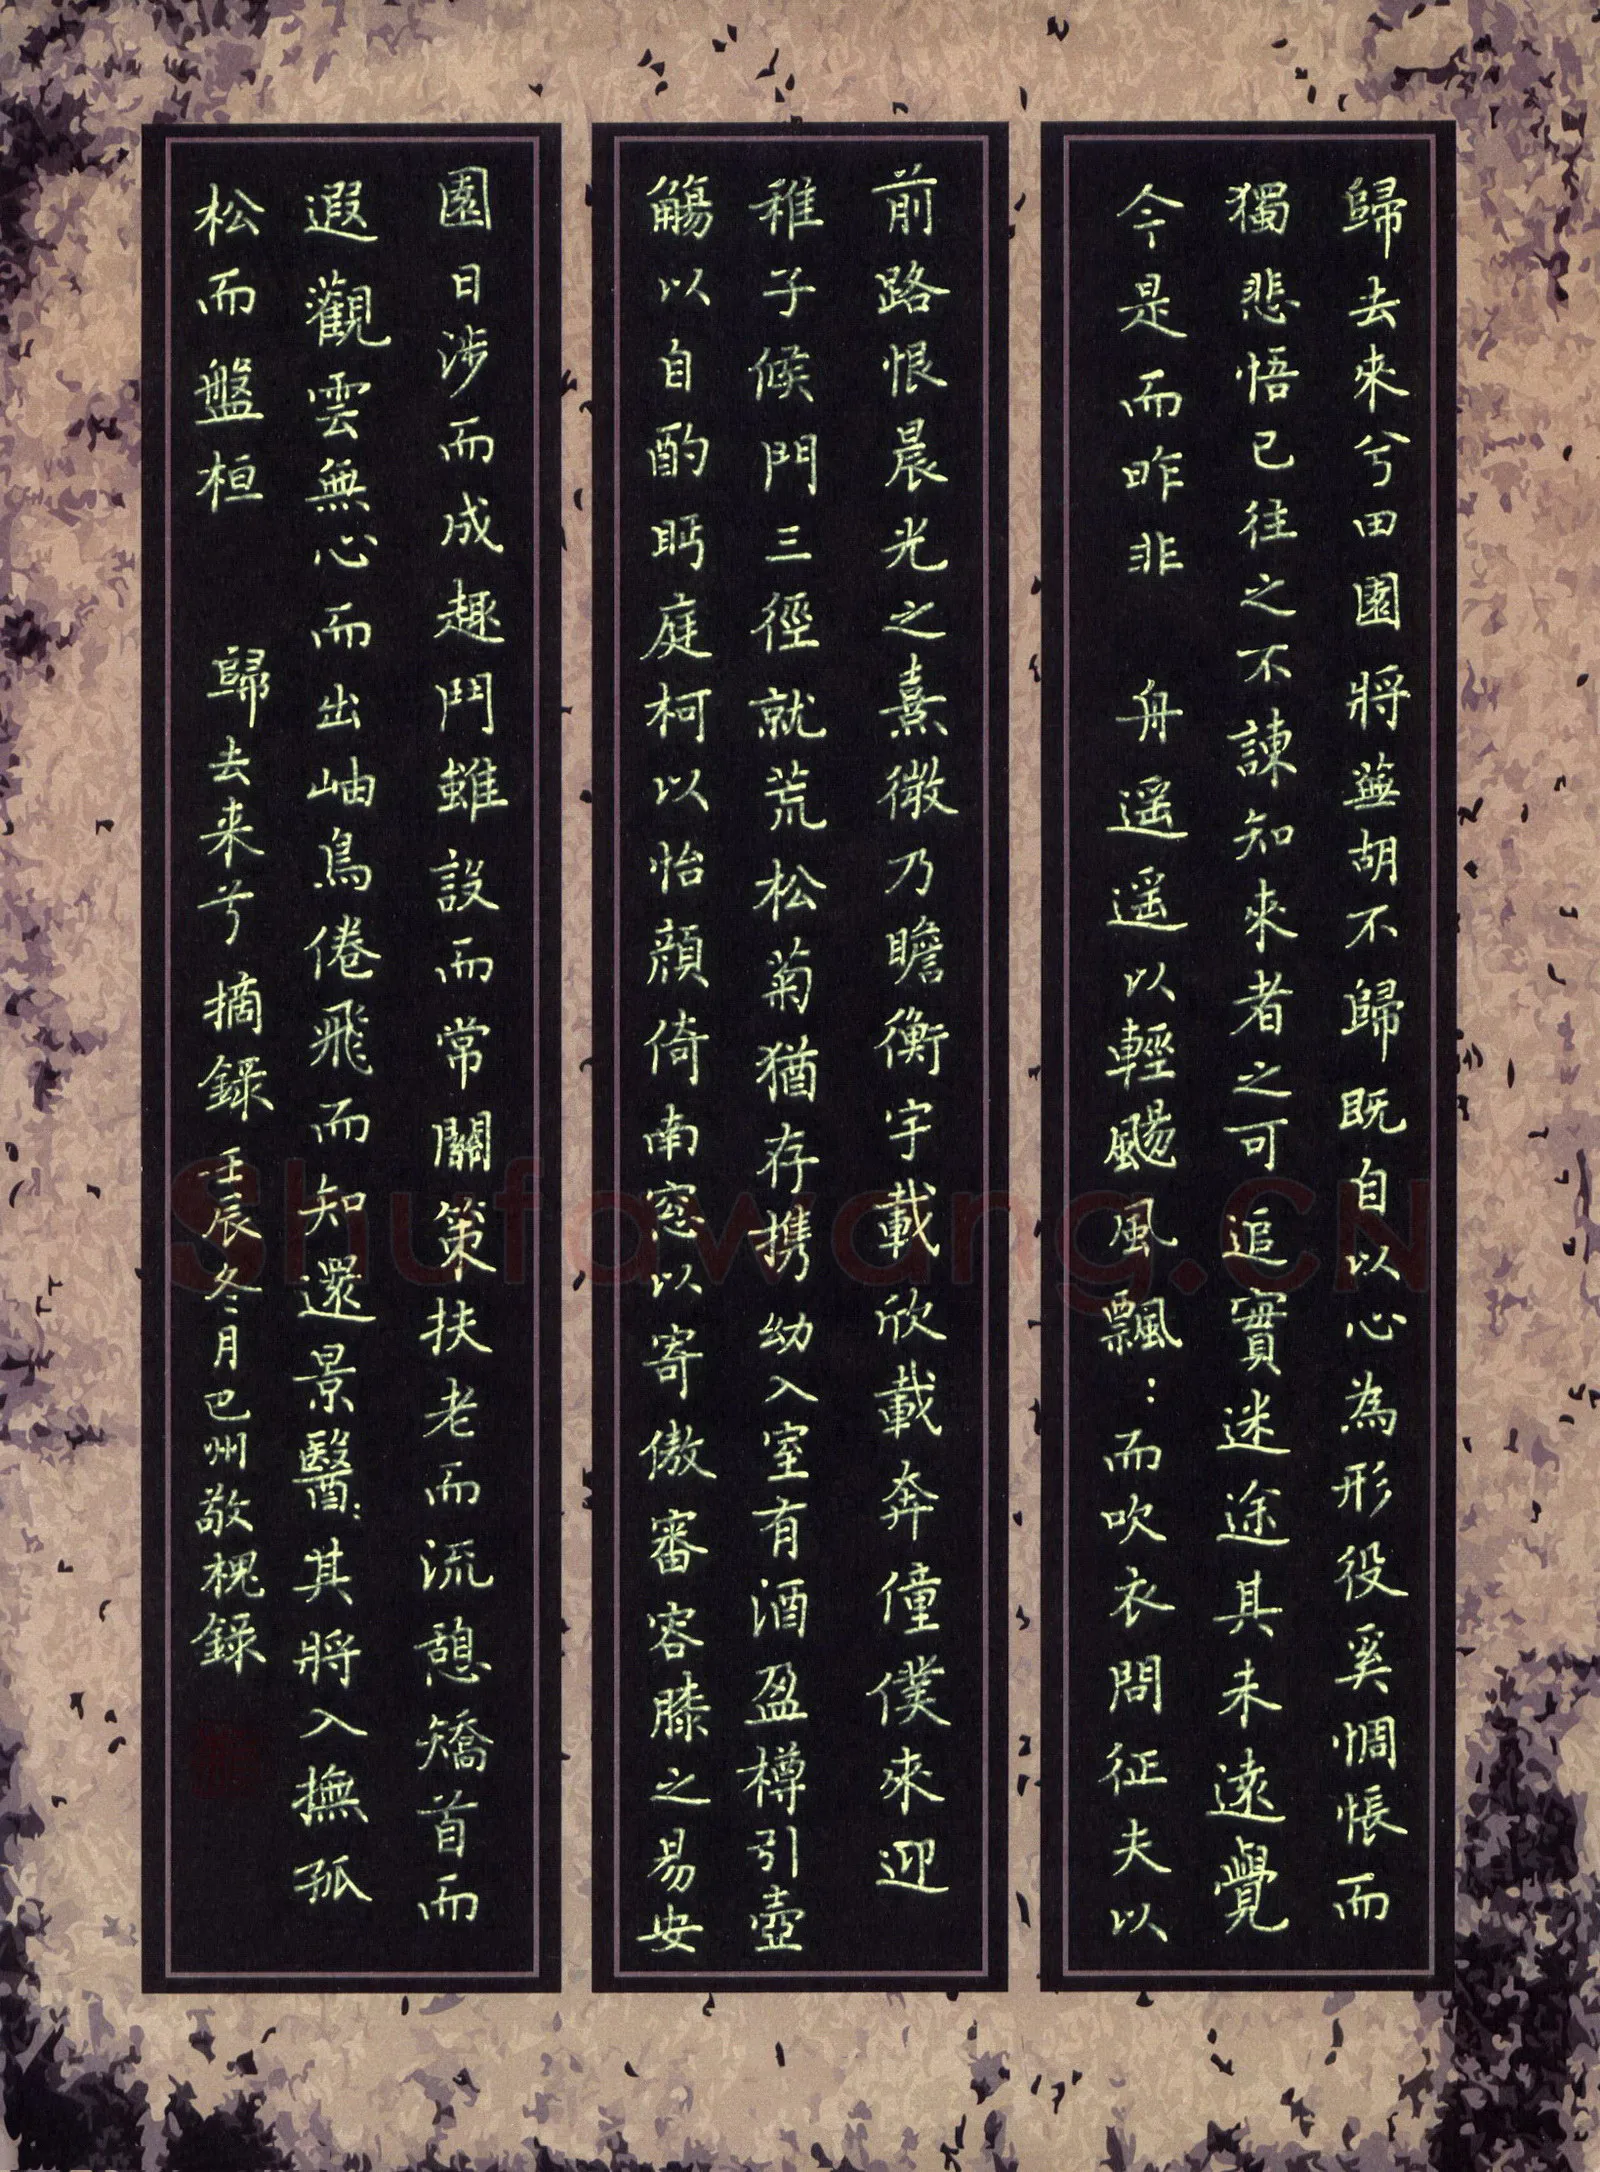 歸去來兮田園將蕪胡不歸既自以心為形役奚惆悵而
獨悲悟已往之不諫知來者之可追實迷途其未遠覺
今是而昨非 舟遥遥以輕颺風飄:而吹衣問征夫以
前路恨晨光之熹微乃瞻衡宇載欣載奔僮僕來迎
稚子候門三徑就荒松菊猶存携幼入室有酒盈樽引壺
觴以自酌眄庭柯以怡顔倚南窓以寄傲審容膝之易安
園日涉而成趣門雖設而常關策扶老而流憩矯首而
遐觀雲無心而出岫鳥倦飛而知還景翳:其將入撫孤
松而盤桓 歸去来兮摘錄壬辰冬月巴州敬槐錄
Shufawang.CN